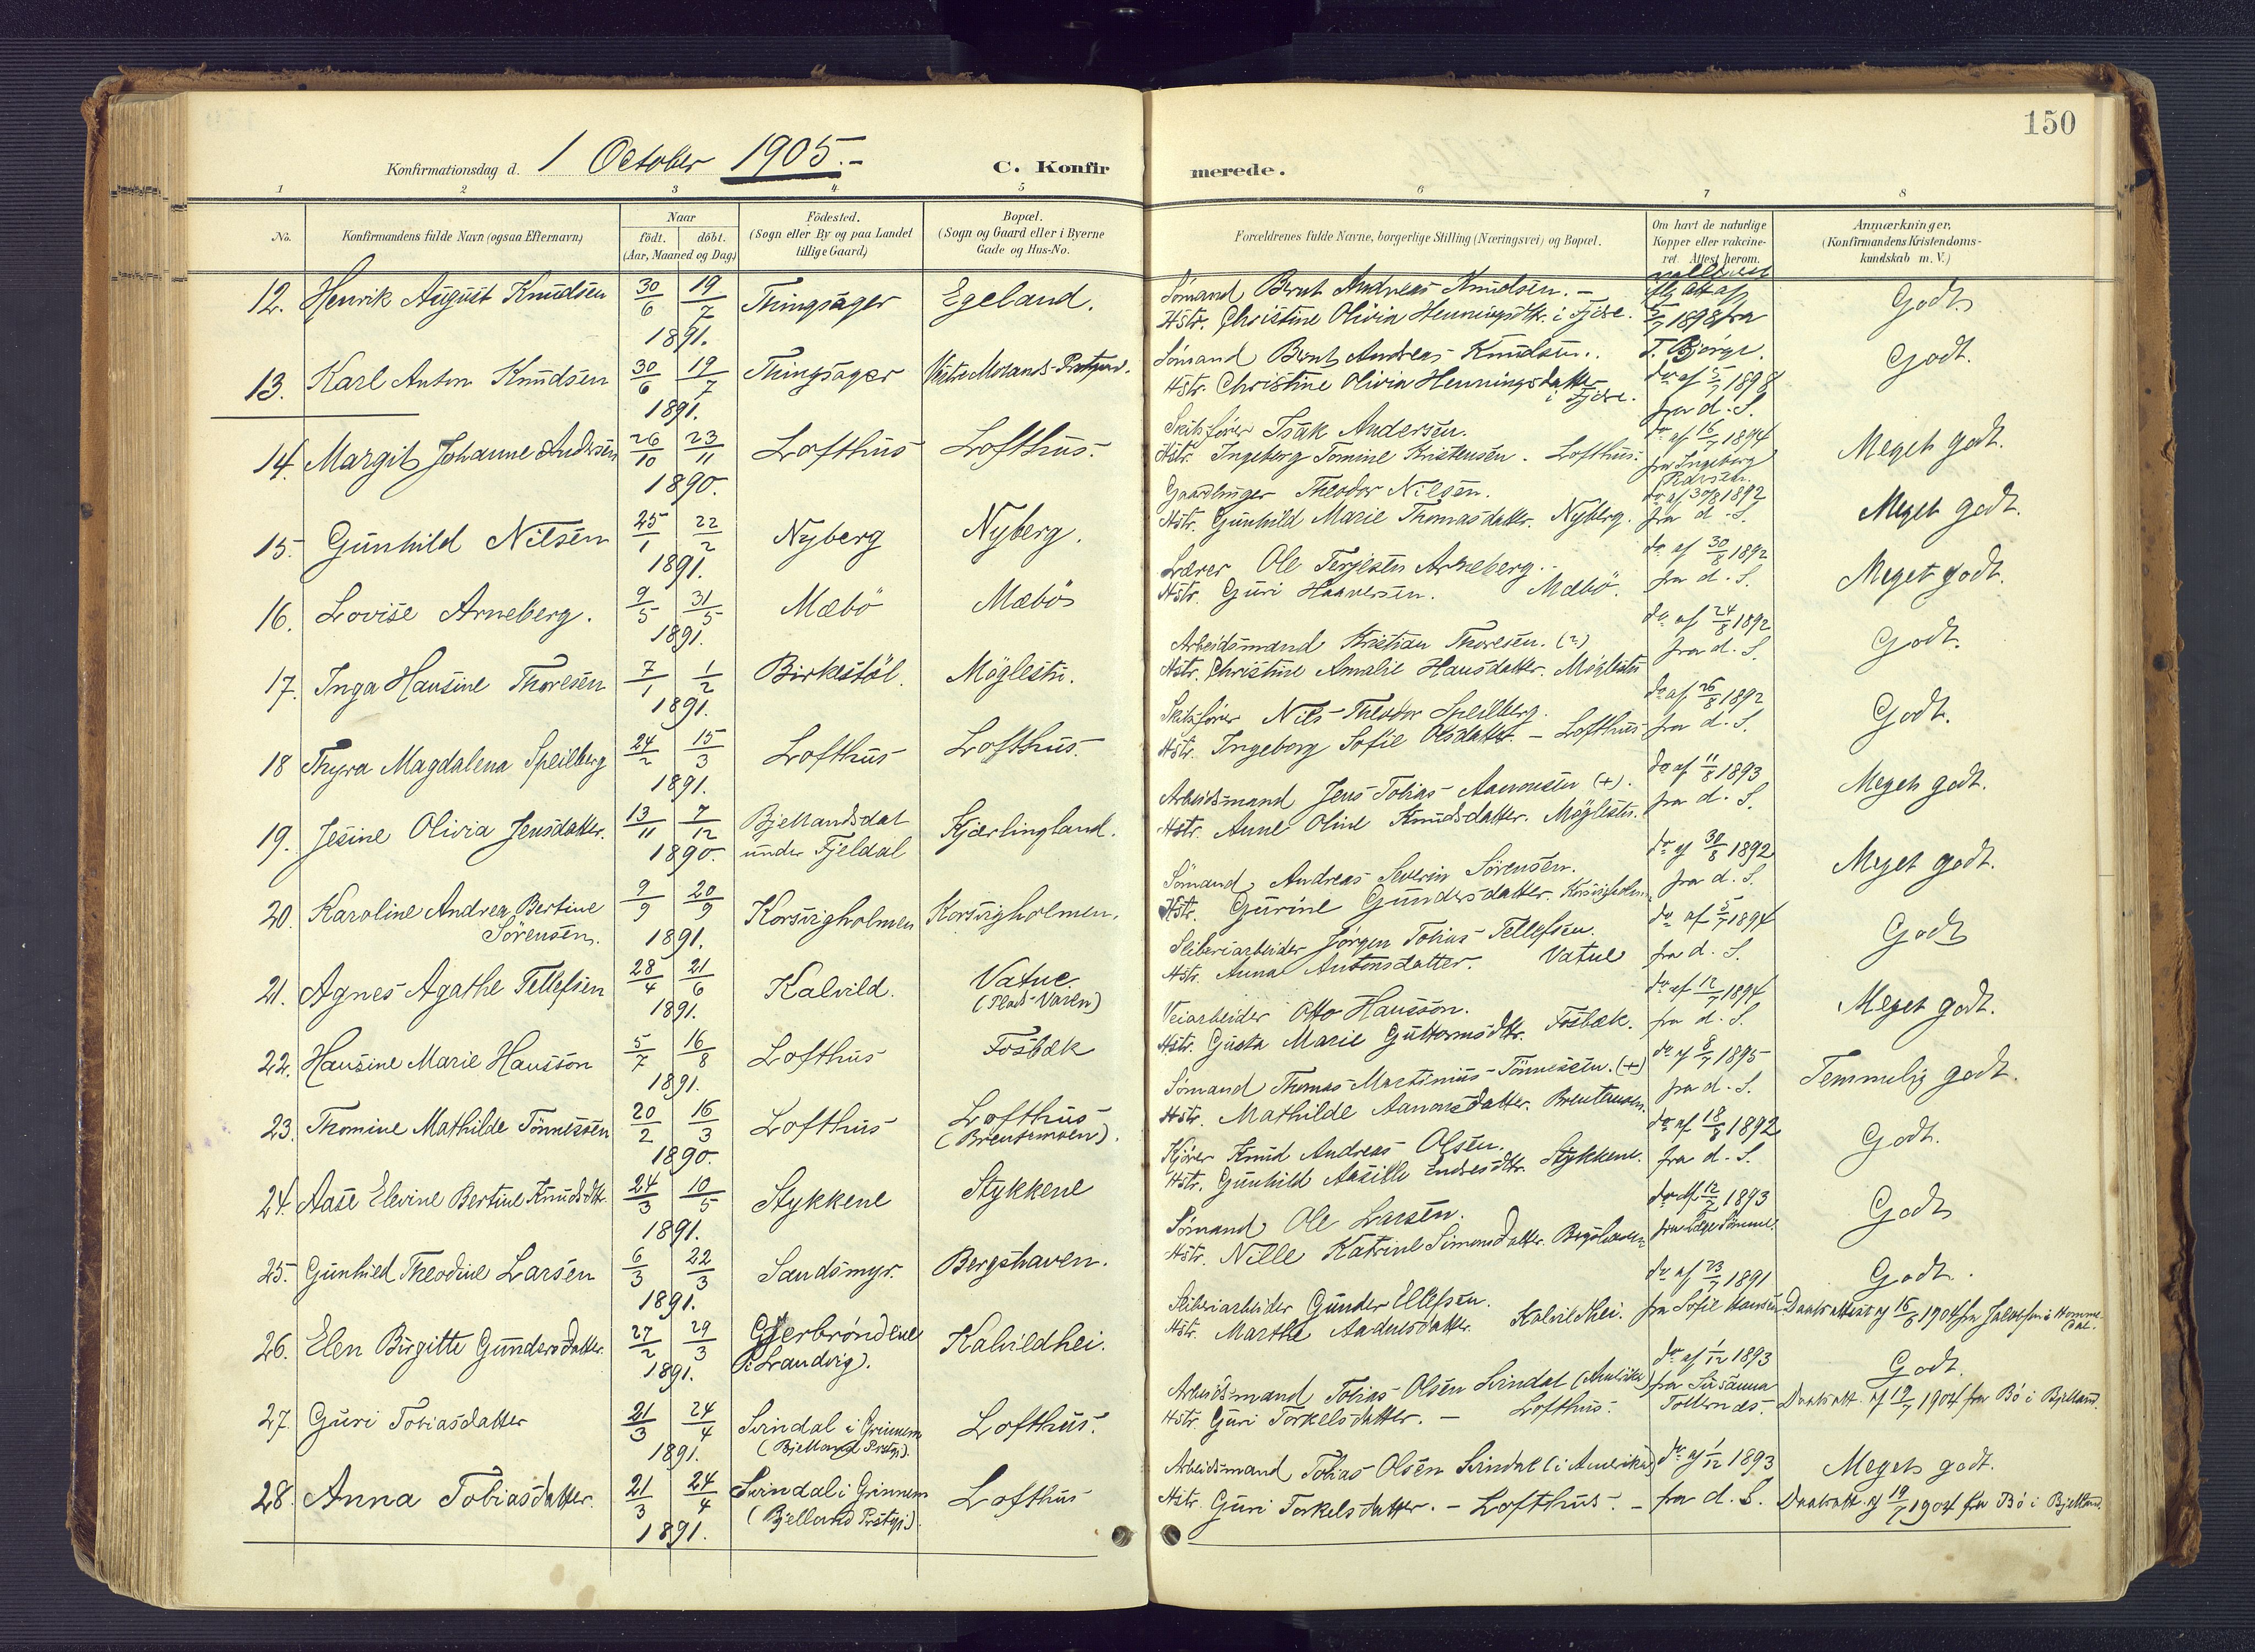 150
Konfirmationsdag d. 1 October 1905.-
C. Konfirmerede.
1 2 3 4 5 6 7 8
No.
Konfirmandens fulde Navn (ogsaa Efternavn)
Naar
födt. döbt.
(Aar, Maaned og Dag)
Födested.
(Sogn eller By og paa Landet
tillige Gaard)
Bopæl.
(Sogn og Gaard eller i Byerne
Gade og Hus-No.
Forældrenes fulde Navne, borgerlige Stilling (Næringsvei) og Bopæl.
Om havt de naturlige
Kopper eller vakcine-
ret. Attest herom.
Anmærkninger,
(Konfirmandens Kristendoms-
kundskab m. V.)
12. Henrik August Knudsen 30/6 19/7 1891. Thingsager Egeland.
Sömand Bernt Andreas Knudsen. -
Hstr. Christine Olivia Henningsdtr. i Fjære.
1898 fra
T. Bjorge.
Godt.
13. Karl Anton Knudsen 30/6 19/7 1891. Thingsager Vestre Molands Prstgaard.
Sömand Bernt Andreas Knudsen.
Hstr. Christine Olivia Henningsdatter
i Fjære.
do af 5/7 1898
fra d. S.
Godt.
14. Margit Johanne Andersen 26/10 23/11 1890. Lofthus Lofthus.
Skibsfører Isak Andersen.
Hstr. Ingeborg Tomine Kristensen. Lofthus.
do af 16/7 1894
fra Ingeborg
Pedersen.
Meget godt.
15. Gunhild Nilsen 25/1 22/2 1891. Nyberg Nyberg.
Gaardbruger Theodor Nilsen.
Hstr. Gunhild Marie Thomasdatter. Nyberg.
do af 30/8 1892
fra d. S.
Meget godt.
16. Lovise Arneberg. 9/5 31/5 1891. Mæbö Mæbö
Lærer Ole Terjesen Arneberg.
Hstr. Guri Haaversen. Mæbö.
do af 30/8 1892
fra d. S.
Meget godt.
17. Inga Hansine Thoresen 7/1 1/2 1891. Birkestöl. Möglestu.
Arbeidsmand Kristian Thoresen. (?)
Hstr. Christine Amalie Hansdatter. Möglestu
do af 24/8 1892
fra d. S.
Godt.
18 Thyra Magdalena Speilberg 24/2 15/3 1891. Lofthus Lofthus.
Skibsfører Nils Theodor Speilberg.
Hstr. Ingeborg Sofie Olsdatter. - Lofthus
do af 26/8 1892
fra d. S.
Godt.
19. Jesine Olivia Jensdatter. 13/11 7/12 1890. Bjellandsdal
under Fjeldal Kjærlingland.
Arbeidsmand Jens Tobias Aanonsen (+).
Hstr. Anne Oline Knudsdatter. Möglestu.
do af 11/8 1893
fra d. S.
Meget godt.
20. Karoline Andrea Bertine
Sörensen. 9/9 20/9 1891. Korsvigholmen Korsvigholmen.
Sömand Andreas Severin Sörensen.
Hstr. Gurine Gundersdatter. Korsvigholm.
do af 30/8 1892
fra d. S.
Meget godt.
21. Agnes Agathe Tellefsen 28/4 21/6 1891. Kalvild. Vatne.
(Plads Varen)
Sliberiarbeider Jörgen Tobias Tellefsen.
Hstr. Anna Antonsdatter. Vatne
do af 5/7 1894
fra d. S.
Godt
22. Hansine Marie Hansson 5/7 16/8 1891. Lofthus Fosbæk
Veiarbeider Otto Hansson.
Hstr. Gusta Marie Guttormsdtr. Fosbæk.
do af 12/7 1894
fra d. S.
Meget godt.
23. Thomine Mathilde Tönnessen 20/2 16/3 1890. Lofthus Lofthus
(Brentemoen).
Sömand Thomas Martinius Tönnessen. (+)
Hstr. Mathilde Aanonsdatter. Brentemoen.
do af 8/7 1895
fra d. S.
Temmelig godt.
24. Aase Elevine Bertine Knudsdtr. 24/3 10/5 1891. Stykkene Stykkene
Kjörer Knud Andreas Olsen.
Hstr. Gunhild Aasille Endresdtr. Stykkene.
do af 18/8 1892
fra d. S.
Godt.
25. Gunhild Theodine Larsen 6/3 22/3 1891. Sandsmyr. Bergshaven.
Sömand Ole Larsen.
Hstr. Nille Katrine Simonsdatter. Bergshaven
do af 12/2 1893
Godt
26. Elen Birgitte Gundersdatter. 27/2 29/3 1891. Gjerbröndene
(i Landvig). Kalvildhei.
Sliberiarbeider Gunder Ellefsen.
Hstr. Marthe Andersdatter. Kalvildhei.
do af 23/7 1891
fra Sofie Hansen
Godt.
Daabsattest af 16/6 1904 fra Jakobsen i Homme-
dal.
27. Guri Tobiasdatter 21/3 24/4 1891. Svindal i Grinnem
(Bjelland Prstgj). Lofthus.
Arbeidsmand Tobias Olsen Svindal (Amerika)
Hstr. Guri Torkelsdatter. - Lofthus.
do af 1/12 1893
fra Susanna
Tollefnæs.
Godt.
Daabsatt. af 19/7 1904 fra Bö i Bjelland.
28. Anna Tobiasdatter. 21/3 24/4 1891. Svindal i Grinnem
(Bjelland Prstgj). Lofthus
Arbeidsmand Tobias Olsen Svindal (i Amerika)
Hstr. Guri Torkelsdatter. - Lofthus. -
do af 1/12 1893
fra d. S.
Meget godt.
Daabsatt. af 19/7 1904 fra Bö i Bjelland.